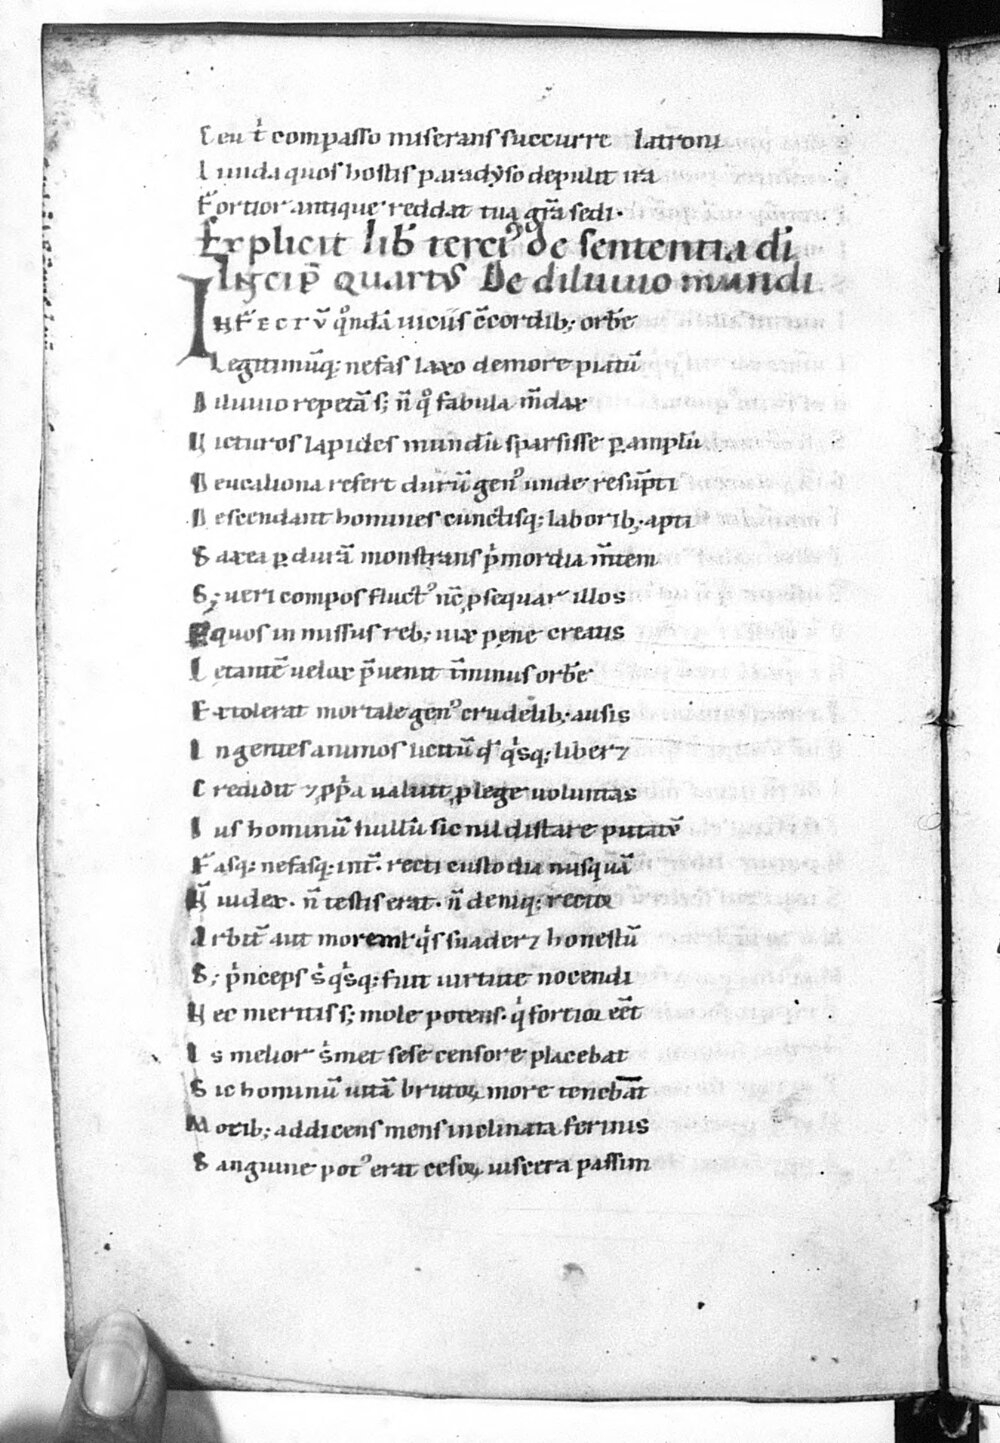 Ceu t̄ compasso miserans succurre latroni
Vt unda quos hostis paradyso depulit ira
Fortior antique reddat tua gr̄a sedi.
Explicit lib̄ terciꝰ de sententia di
Incip̄ Quartus De diluuio mundi
Infectū quondā uiciis c̄cordib; orbē
Legitimūq; nefas laxo de more piatū
Diluuio repetā s; n̄ qͦ fabula m̄dax
Victuros lapides mundū sparsisse ꝑ amplū
Deucaliona refert durū genꝰ unde resūpti
Descendant homines cunctisq; laborib; apti
Saxea ꝑ durā monstrans pͥmordia m̄tem
S; ueri compos fluctꝰ nc̄ ꝓsequar illos
Equos inmissus reb; uix pene creatis
Letantē uelox p̄uenit t̄minus orbē
Extolerat mortale genꝰ crudelib; ausis
Ingentes animos licitū qd̄ qͥsq; liber &
Credidit & ꝓpͥa ualuit ꝓ lege uoluntas
Ius hominū nullū sic nil distare putatū
Fasq; nefasq; int̄. recti custodia nusquā
N̄ iudex. n̄ testis erat. n̄ deniq; rector
Arbit̄ aut morem qͥs suader & honestū
S; pͥnceps sͥ qͥsq; fuit uirtute nocendi
Nec meritis s; mole potens. qͥ fortior eēt
Is melior sͥmet sese censore placebat
Sic hominū uitā brutoꝝ more tenebāt
Morib; addicens mens inclinata ferinis
Sanguine potꝰ erat cesoꝝ uiscera passim